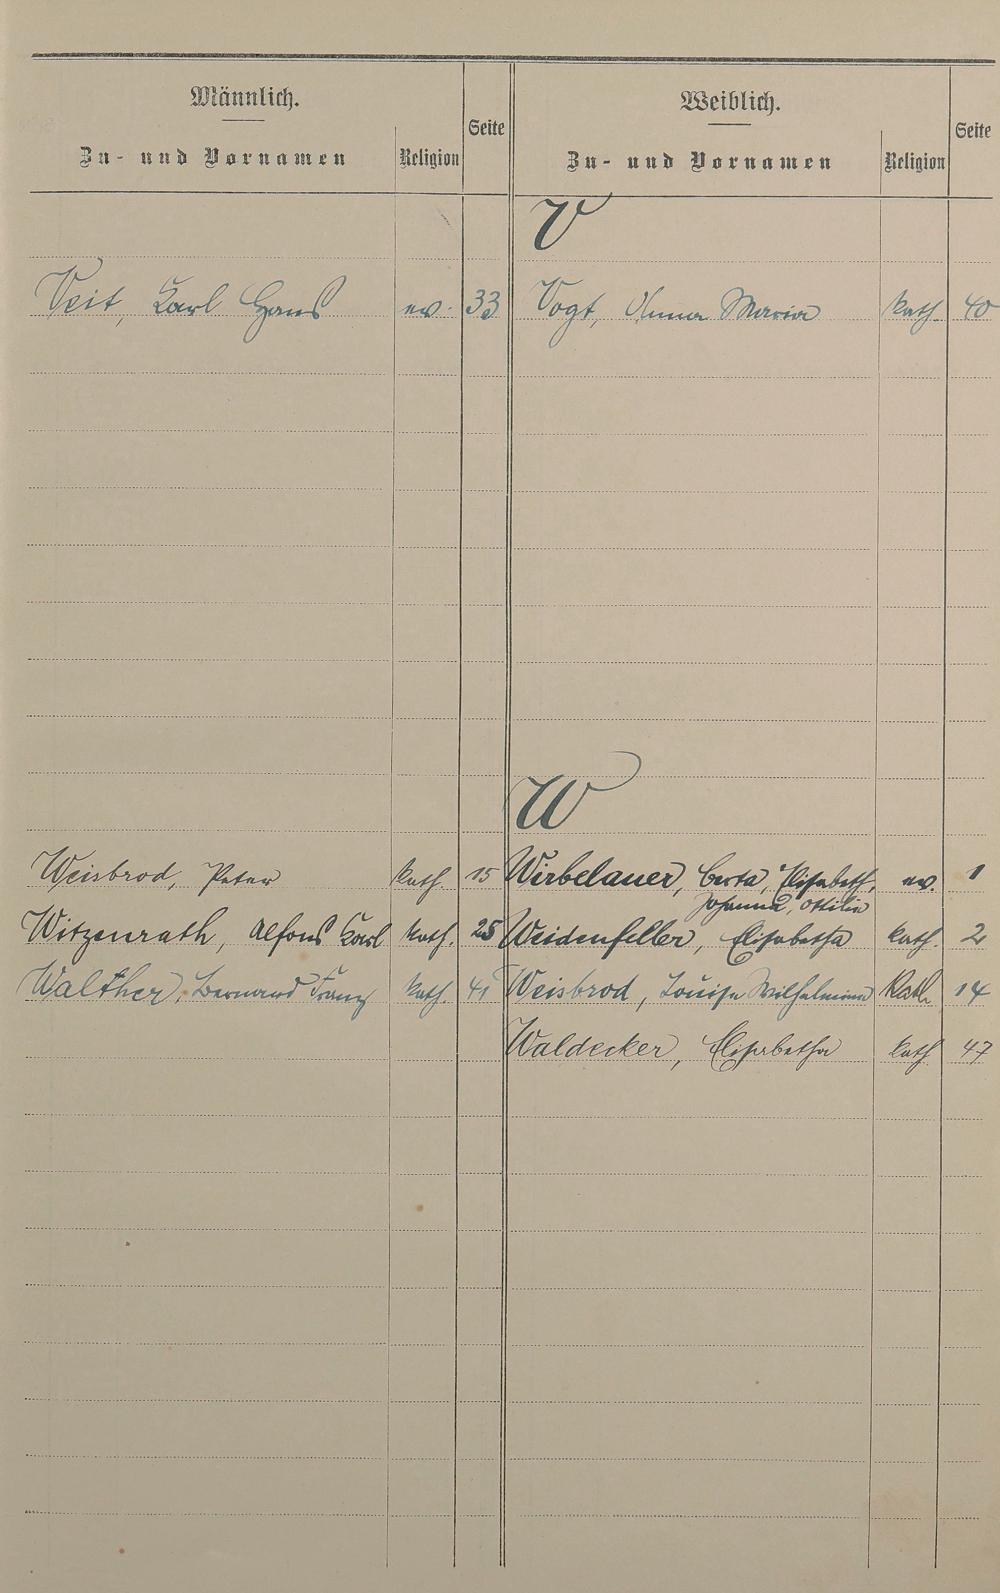 Männlich.
Weiblich.
Seite
Seite
Zu- und Vornamen
Religion
Zu- und Vornamen
Religion
V
Veit, Karl Hans ev. 33 Vogt, Anna Maria kath. 40
W
Weisbrod, Peter kath. 15 Wirbelauer, Berta, Elisabeth, ev. 1
Johanna, Ottilie
Witzenrath, Alfons Karl kath. 25 Weidenfeller, Elisabetha kath. 2
Walther, Bernard Franz kath. 41 Weisbrod, Louise Wilhelmine Kath 14
Waldecker, Elisabetha kath 47